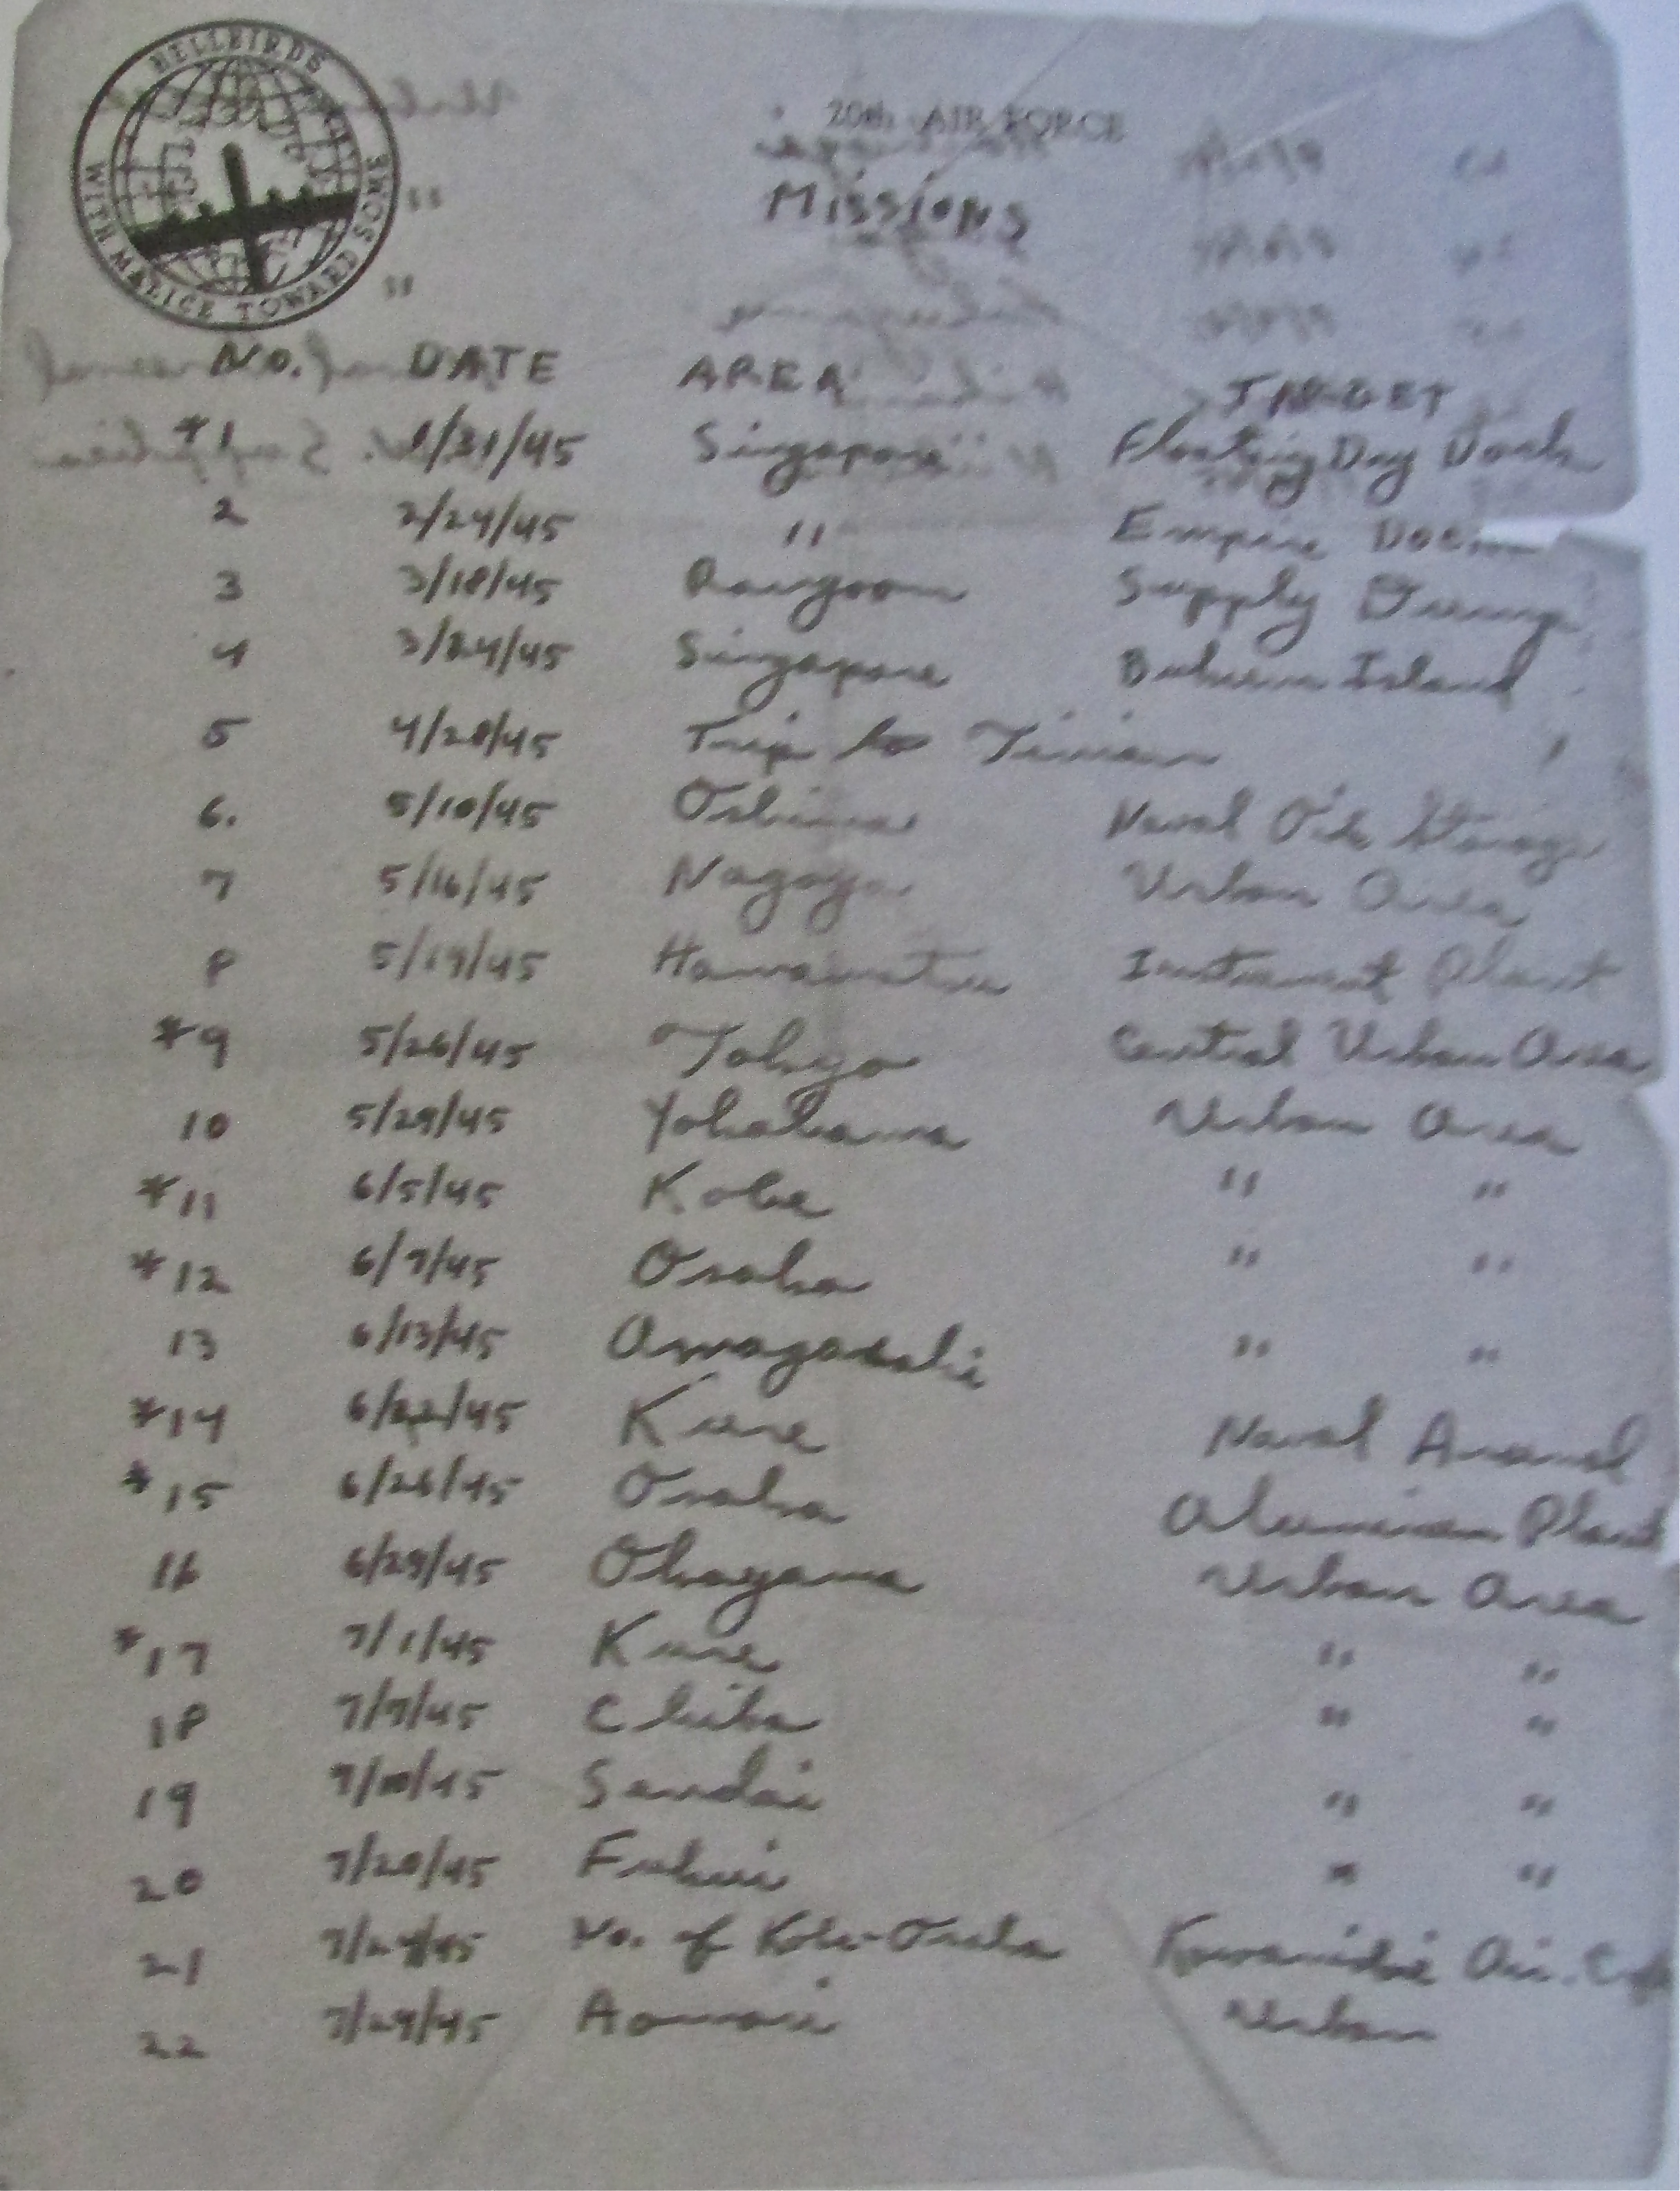 HELLBIRDS
WITH MALICE TOWARD SOME
20th AIR FORCE
MISSIONS
No. DATE AREA TARGET
*1 1/31/45 Singapore Floating Dry Dock
2 2/24/45 " Empire
3 3/18/45 Rangoon Supply Dump
4 3/24/45 Singapore Bukum Island
5 4/28/45 Trip to Tinian
6. 5/10/45 Oshima Naval Oil Storage
7 5/16/45 Nagoya Urban Area
8 5/19/45 Hamamatsu Instrument Plant
*9 5/26/45 Tokyo Central Urban Area
10 5/29/45 Yokohama Urban Area
*11 6/5/45 Kobe " "
*12 6/7/45 Osaka " "
13 6/13/45 Amagasaki " "
*14 6/22/45 Kure Naval Arsenal
*15 6/26/45 Osaka Aluminum Plant
16 6/29/45 Okayama Urban Area
*17 7/1/45 Kure " "
18 7/7/45 Chiba " "
19 7/10/45 Sendai " "
20 7/20/45 Fukui " "
21 7/24/45 No. of Kobe-Osaka Air.
22 7/29/45 Aomori Urban